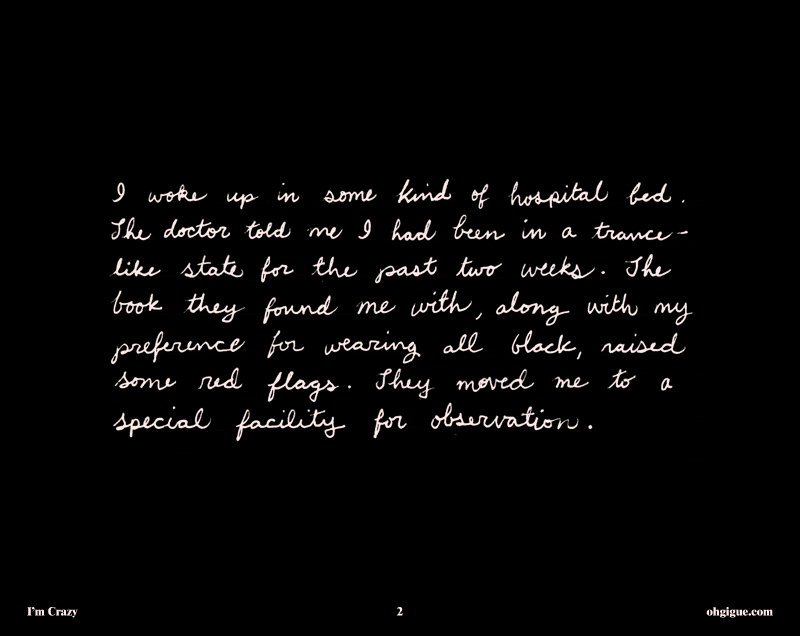 I woke up in some kind of hospital bed.
The doctor told me I had been in a trance-
like state for the past two weeks. The
book they found me with, along with my
preference for wearing all black, raised
some red flags. They moved me to a
special facility for observation.
I'm Crazy
2
ohgigue.com